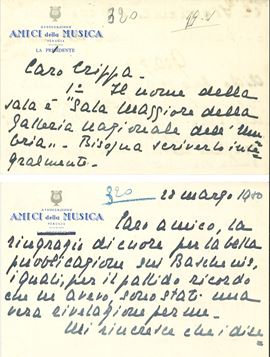 320
19-V
ASSOCIAZIONE
AMICI della MUSICA
PERUGIA
LA PRESIDENTE
Caro Crippa -
1° Il nome della
sala è "Sala Maggiore della
Galleria Nazionale dell'Um
bria" - Bisogna scriverlo inte
gralmente.
320
28 marzo 1980
ASSOCIAZIONE
AMICI della MUSICA
PERUGIA
Caro amico, la
ringrazio di cuore per la bella
pubblicazione sui Baschenis,
i quali, per il pallido ricordo
che ne avevo, sono stati una
vera rivelazione per me.
Mi rincresce che i dise